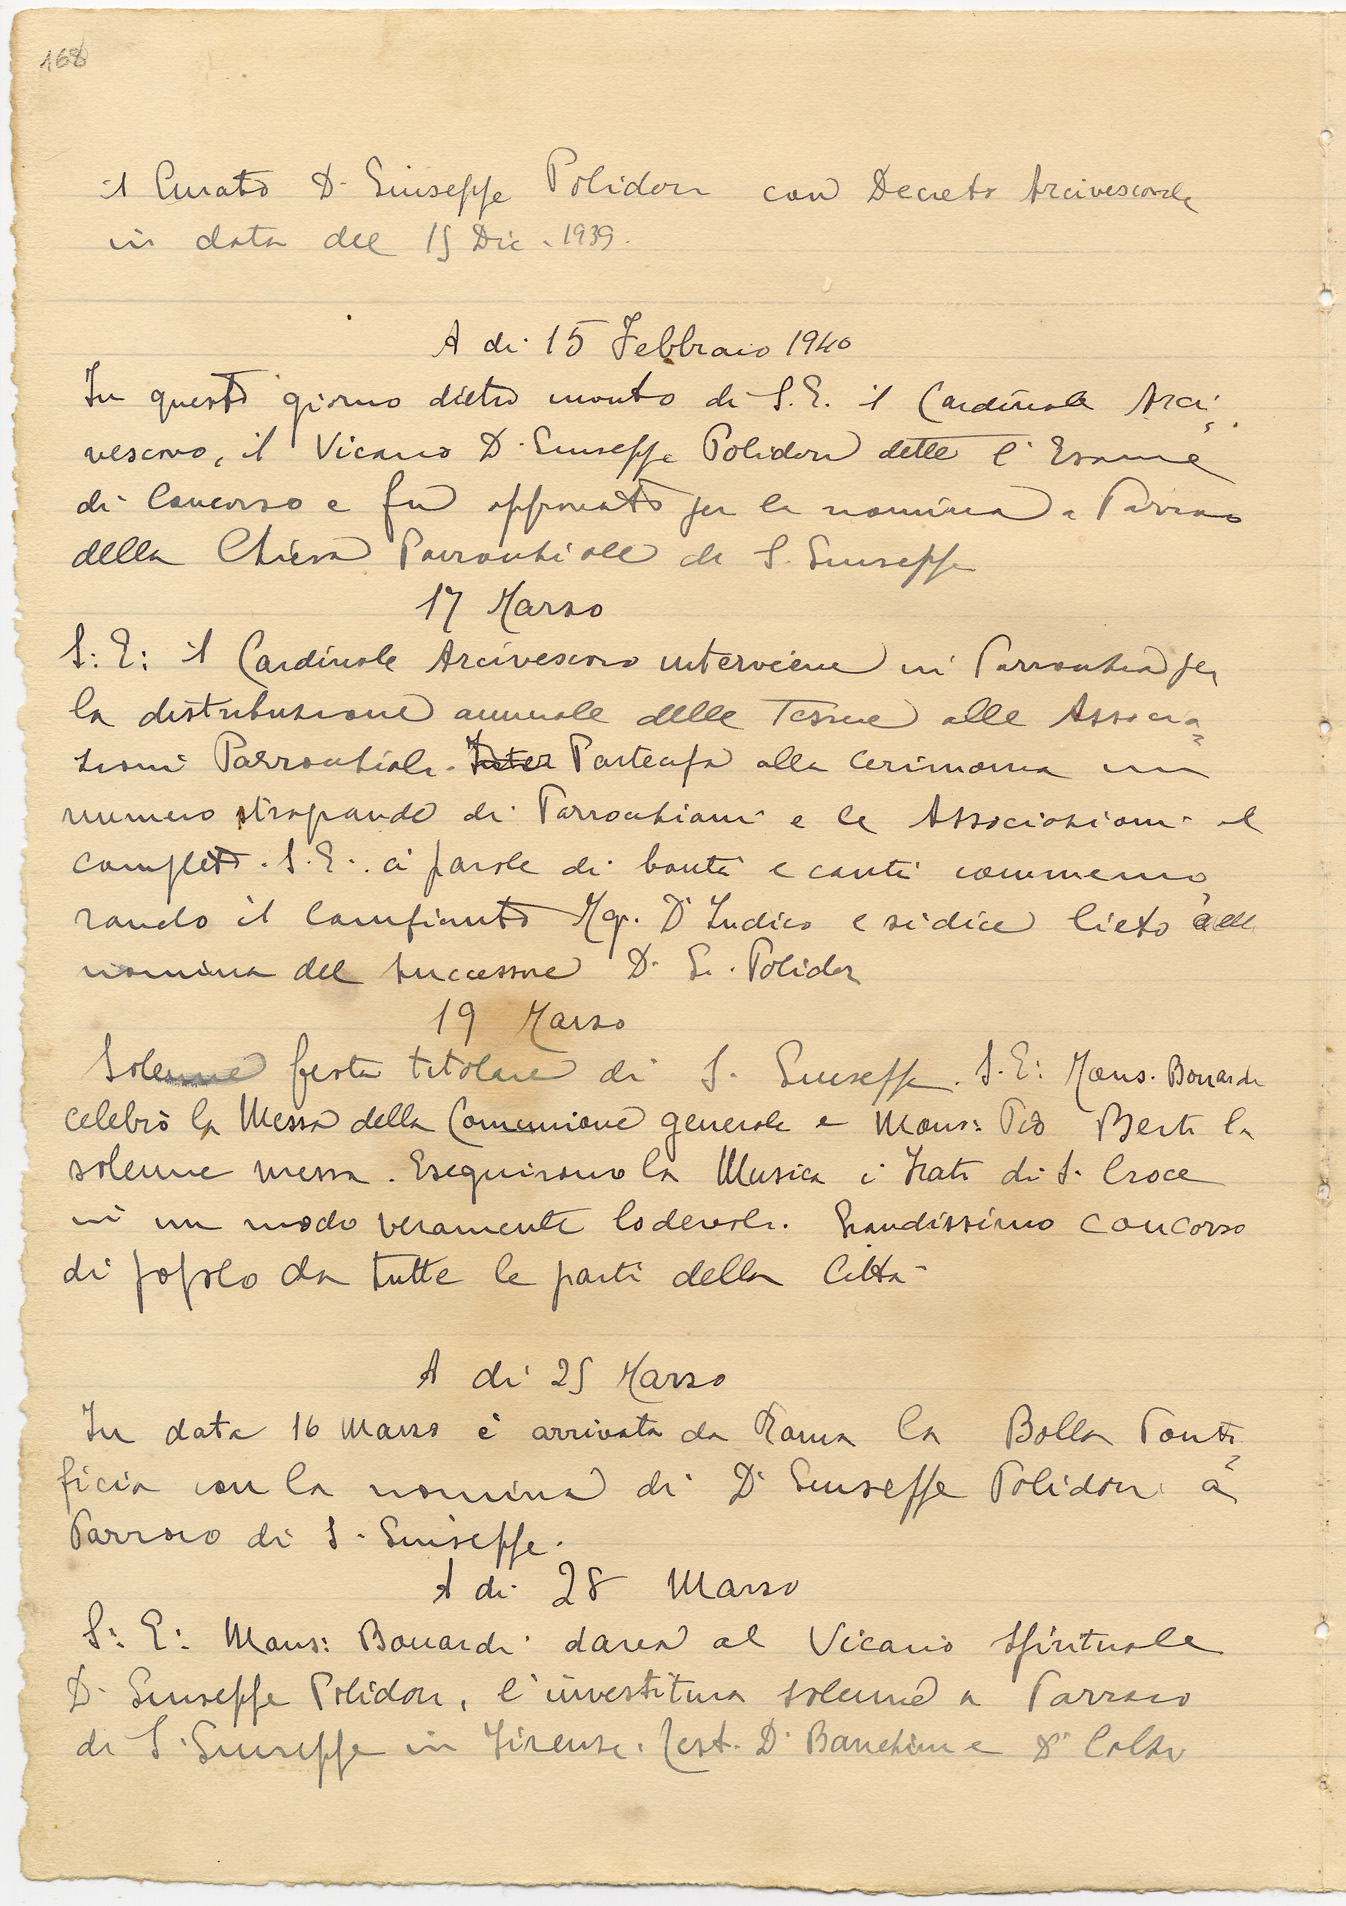 168
il Curato D. Giuseppe Polidori con Decreto Arcivescovile
in data del 15 Dic. 1939.
A di 15 Febbraio 1940
In questo giorno dietro invito di S. E. il Cardinale Arci=
vescovo, il Vicario D. Giuseppe Polidori dette l'Esame
di Concorso e fu approvato per la nomina a Parroco
della Chiesa Parrocchiale di S. Giuseppe
17 Marzo
S: E: il Cardinale Arcivescovo interviene in Parrocchia per
la distribuzione annuale delle Tessere alle Associa=
zioni Parrocchiali. Inter Partecipa alla cerimonia un
numero stragrande di Parrocchiani e le Associazioni al
completo. S. E. à parole di bontà e carità commemo=
rando il compianto Mgr. D'Indico e si dice lieto della
nomina del successore D. G. Polidori
19 Marzo
Solenne festa titolare di S. Giuseppe. S. E: Mons. Bonardi
celebrò la Messa della Comunione generale e Mons: Pio Berti la
solenne messa. Eseguirono la Musica i Frati di S. Croce
in un modo veramente lodevole. Grandissimo concorso
di popolo da tutte le parti della Città
A di 25 Marzo
In data 16 Marzo è arrivata da Roma la Bolla Ponti=
ficia con la nomina di D. Giuseppe Polidori a
Parroco di S. Giuseppe.
A di 28 Marzo
S: E: Mons: Bonardi dava al Vicario Spirituale
D. Giuseppe Polidori, l'investitura solenne a Parroco
di S. Giuseppe in Firenze. Test. D. Banchini e D.